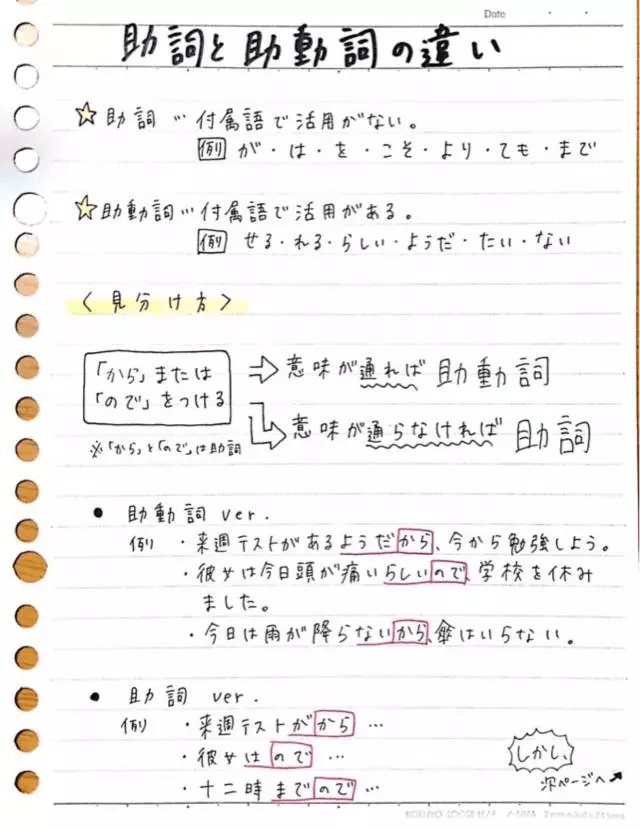 Date
助詞と助動詞の違い
☆助詞…付属語で活用がない。
例 が・は・を・こそ・より・ても・まで
☆助動詞…付属語で活用がある。
例 せる・れる・らしい・ようだ・たい・ない
〈見分け方〉
「から」または
「ので」をつける
⇨意味が通れば 助動詞
意味が通らなければ 助詞
※「から」と「ので」は助詞
● 助動詞 ver.
例 ・来週テストがあるようだから、今から勉強しよう。
・彼女は今日頭が痛いらしいので、学校を休み
ました。
・今日は雨が降らないから、傘はいらない。
● 助詞 ver.
例 ・来週テストがから…
・彼女はので…
・十二時までので…
しかし、
次ページへ↗